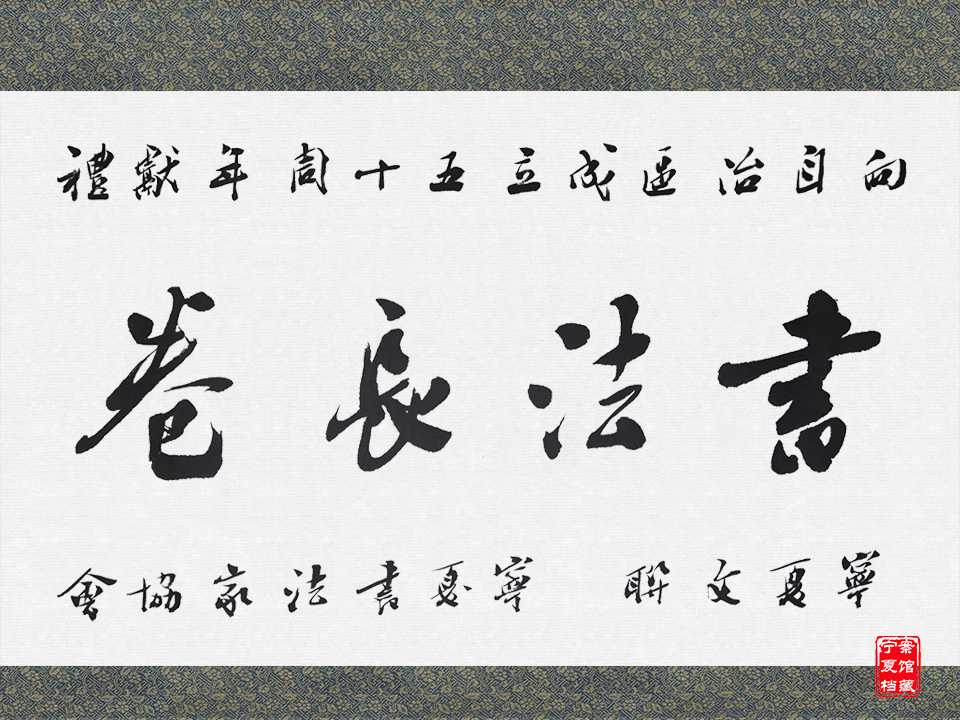 向自治區成立五十周年獻禮
書法長卷
寧夏文聯 寧夏書法家協會
宁夏档案馆藏